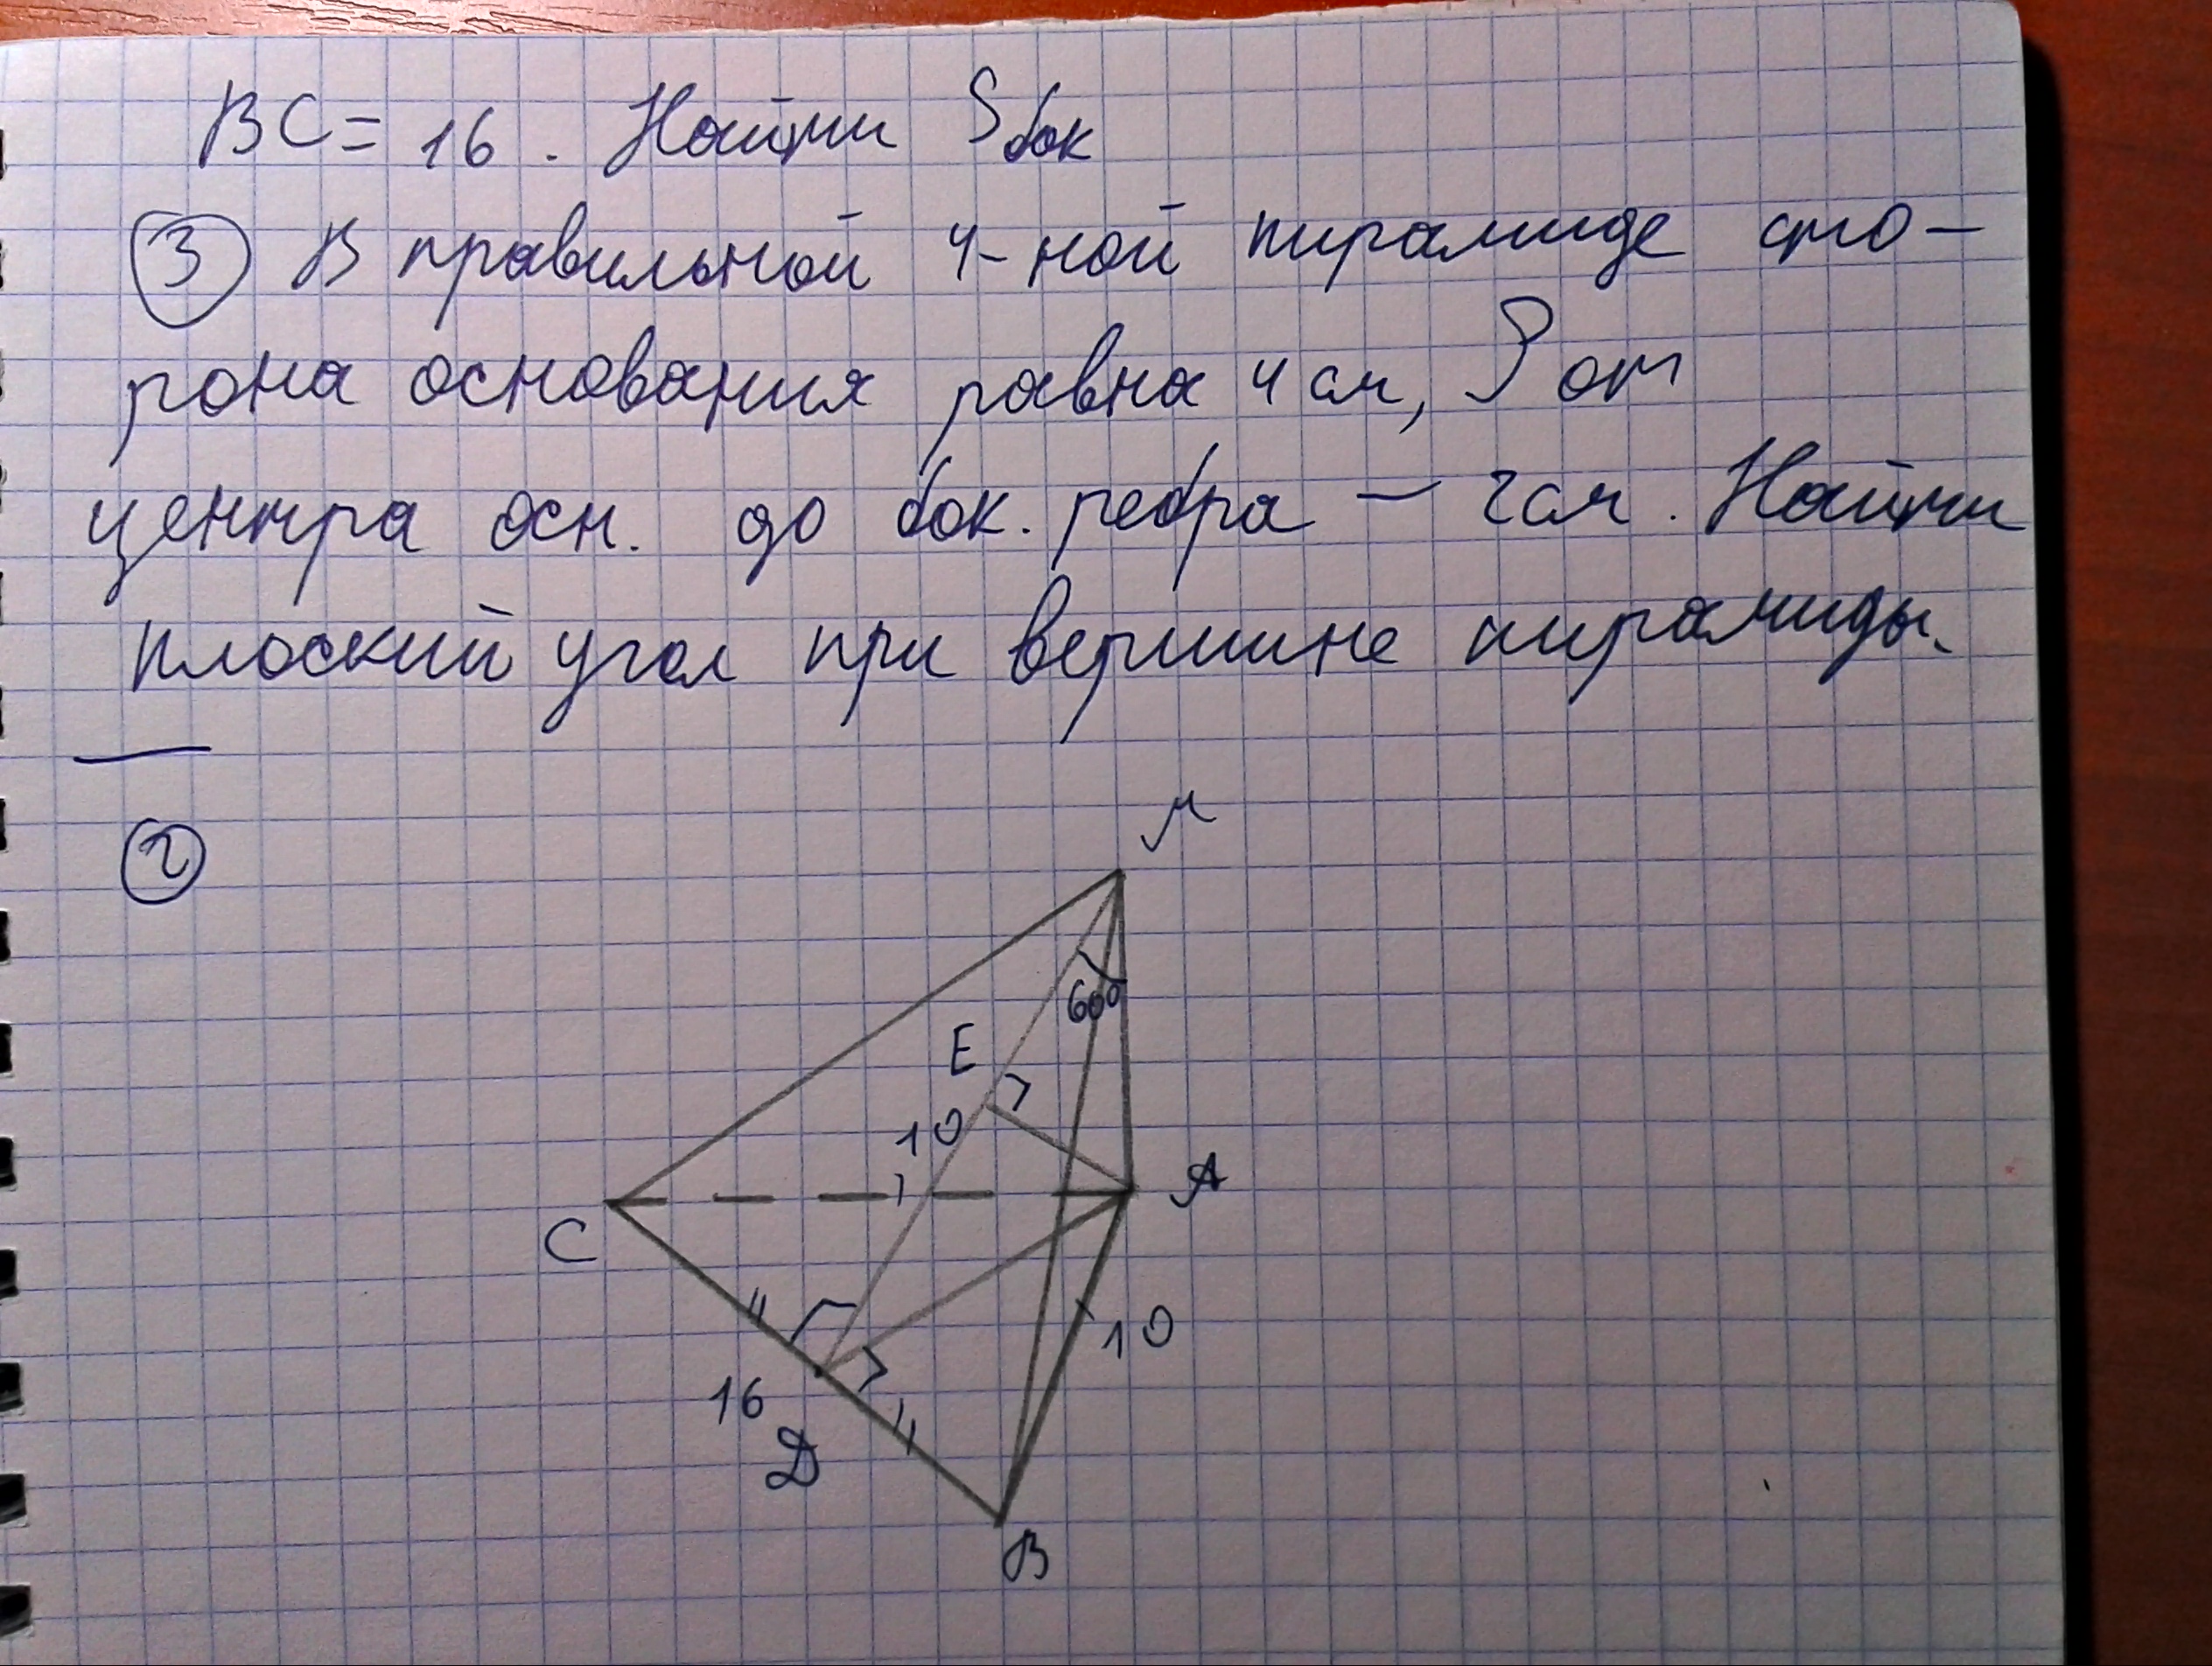 BC = 16. Найти Sбок
③ В правильной 4-ной пирамиде сто-
рона основания равна 4 см, ρ от
центра осн. до бок. ребра – 2 см. Найти
плоский угол при вершине пирамиды.
②
M
60°
E
10
A
C
10
16
D
B